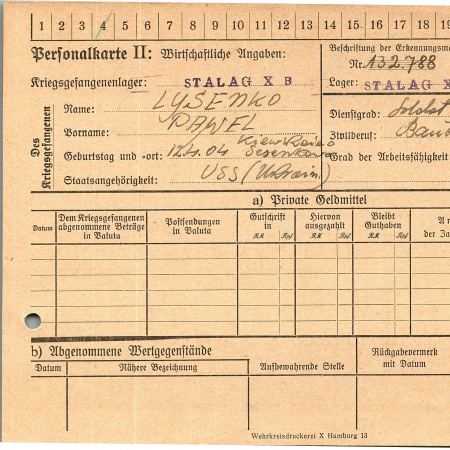 1 2 3 4 5 6 7 8 9 10 11 12 13 14 15 16 17 18 19
Personalkarte II: Wirtschaftliche Angaben:
Beschriftung der Erkennungsma
Nr. 132.788
Kriegsgefangenenlager: STALAG X B
Lager: STALAG X
Des Kriegsgefangenen
Name: LYSENKO
Vorname: PAWEL
Geburtstag und -ort: 12.4.04
Staatsangehörigkeit: USS (Ukrain)
Dienstgrad: Soldat
Zivilberuf: Bau
Grad der Arbeitsfähigkeit
a) Private Geldmittel
Datum
Dem Kriegsgefangenen abgenommene Beträge in Valuta
Postsendungen in Valuta
Gutschrift in
RM Rpf
Hiervon ausgezahlt
RM Rpf
Bleibt Guthaben
RM Rpf
der Za
b) Abgenommene Wertgegenstände
Datum
Nähere Bezeichnung
Aufbewahrende Stelle
Rückgabevermerk mit Datum
Wehrkreisdruckerei X Hamburg 13